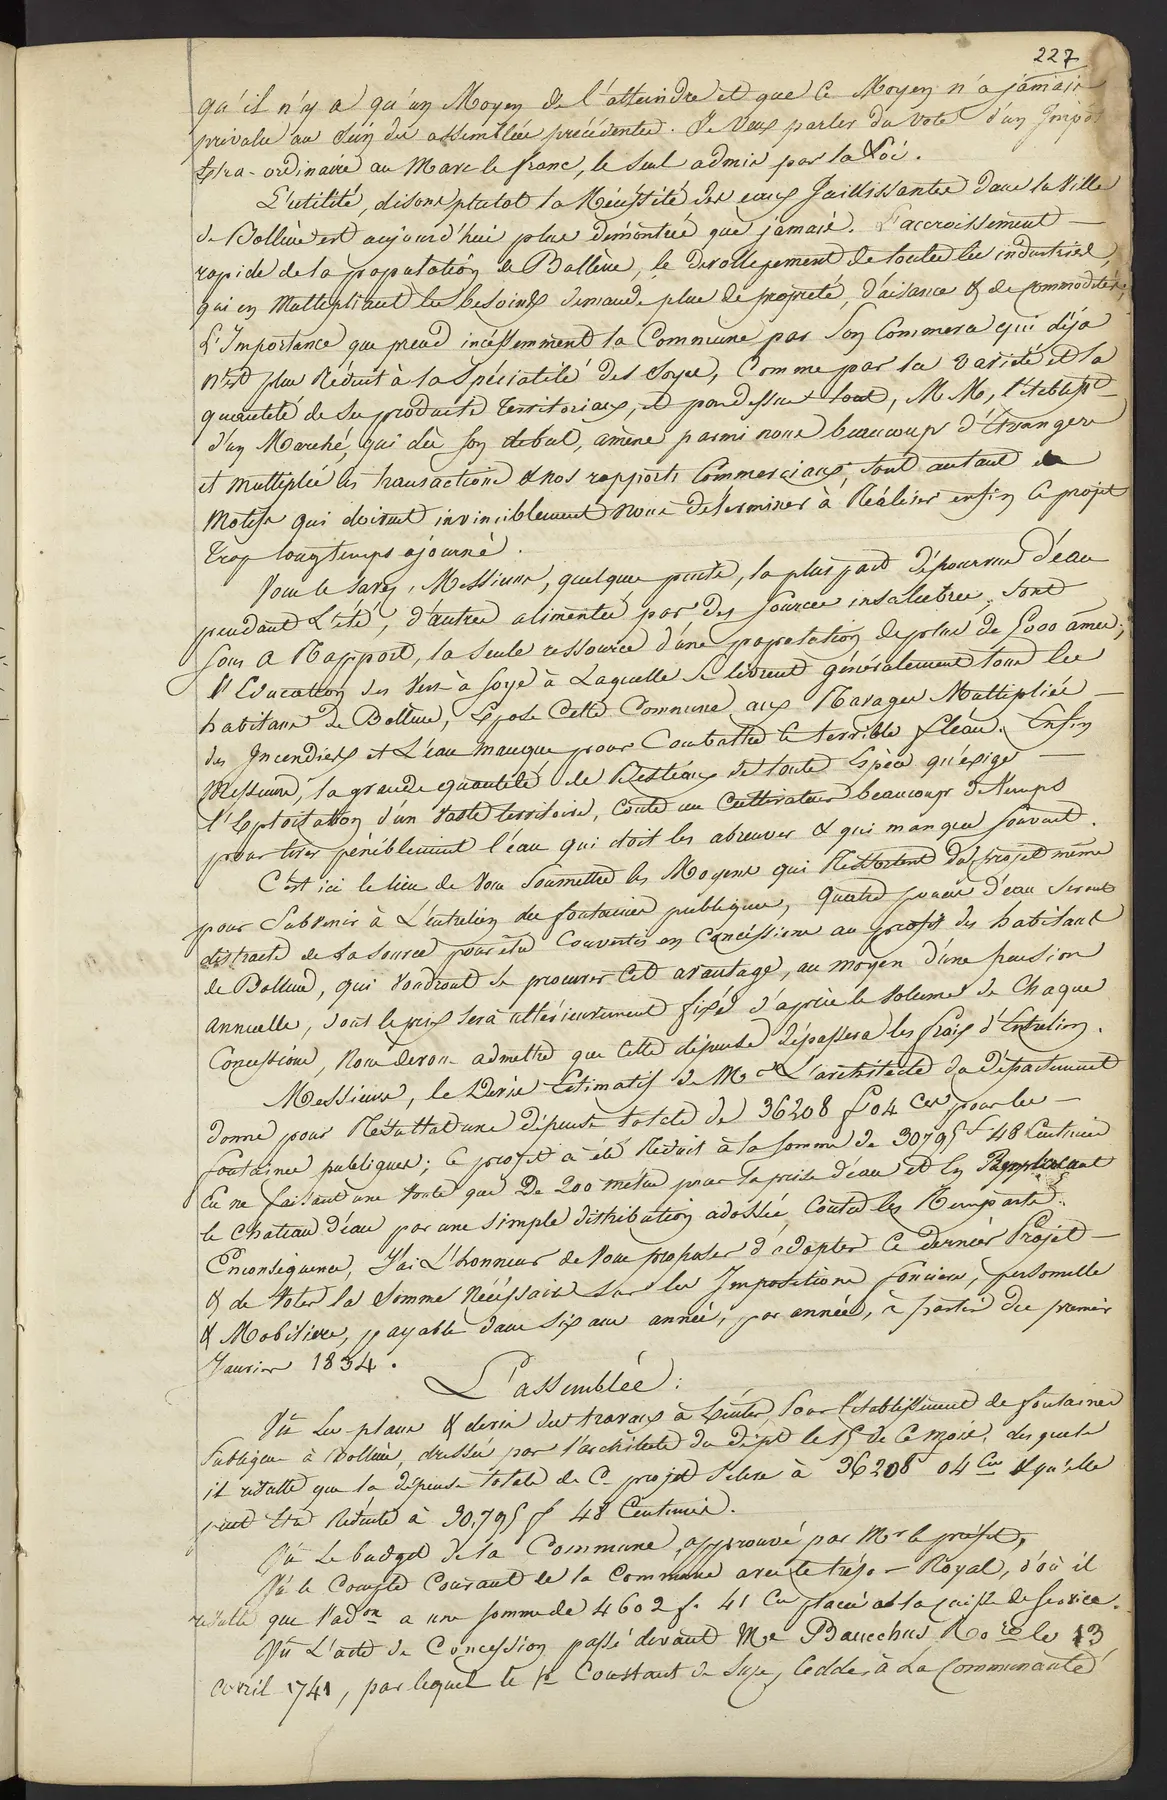 227
qu'il n'y a qu'un Moyen de l'atteindre et que ce Moyen n'a jamais
prévalu au sein des assemblées précédentes. Je veux parler du vote d'un Impôt
Extra-ordinaire au Marc le franc, le seul admis par la Loi.
L'utilité, disons plutot la Nécessité des eaux Jaillissantes dans la Ville
de Bollène est aujourd'hui plus démontrée que jamais. L'accroissement
rapide de la population de Bollène, le dévellopement de toutes les industries,
qui en Multipliant les besoins demande plus de propreté, d'aisance & de commodités,
L'Importance que prend incéssemment la Commune par son Commerce qui déja
n'est plus Réduit à la Spécialité des Soyes, Comme par la variété et la
quantité de ses produits territoriaux, et pardessus tout, MM, l'établisst
d'un Marché, qui dès son début, amène parmi nous beaucoup d'Etrangers
et multiplié les transactions & nos rapports Commerciaux, sont autant de
Motifs qui doivent invinciblement nous déterminer à Réaliser enfin ce projet
trop longtemps ajourné.
Vous le savez, Messieurs, quelques puits, la plus part dépourvus d'eau
pendant L'été, d'autres alimentés par des sources insalubres, sont
sous ce Rapport, la seule ressource d'une population de plus de 5000 âmes;
l'Education des Vers à soye à Laquelle se livrent généralement tous les
habitans de Bollène, Expose Cette Commune aux Ravages Multipliés
des Incendies et L'eau manque pour Combattre le terrible fléau. Enfin
Messieurs, la grande quantité de Bestiaux de toute Espèce qu'éxige
l'Exploitation d'un vaste territoire, Coute au Cultivateur beaucoup de temps
pour tirer péniblement l'eau qui doit les abreuver & qui manque souvent.
C'est ici le lieu de Vous Soumettre les Moyens qui Ressortent du projet même
pour Subvenir à L'entretien des fontaines publiques, quatre pouces d'eau seront
distraits de la source pour être Convertis en Concéssions au profit des habitans
de Bollène, qui Voudront se procurer Cet avantage, au moyen d'une pension
annuelle, dont le prix sera ultérieurement fixé d'après le Volume de Chaque
Concession, Nous devons admettre que Cette dépense dépassera les frais d'Entretien.
Messieurs, le Devis Estimatif de Mr L'architecte du Département
donne pour Résultat une dépense totale de 36208 f 04 Ces pour les
fontaines publiques; Ce projet à été Réduit à la somme de 30795 f 48 Centimes
En ne faisant une voute que De 200 mètres pour la prise d'eau et En Remplacant
le Chateau d'eau par une simple distribution adossée Contre les Remparts.
Enconséquence, J'ai L'honneur de Vous proposer d'adopter Ce dernier Projet
& de Voter la Somme Nécéssaire sur les Impositions foncière, personnelle
& Mobilière, payable dans six ans année, par année, à partir du premier
Janvier 1834.
L'assemblée:
Vû Les plans & devis des travaux à Exécuter pour l'établissement de fontaines
Publiques à Bollène, dressés par l'architecte du Dépt le 15 de Ce Mois, des quels
il résulte que la dépense totale de Ce projet s'élève à 36208 04 Ces & qu'elle
peut Etre Réduite à 30,795 f 48 Centimes.
Vû Le budget de la Commune, approuvé par Mr le préfet,
Vû le Compte Courant de la Commune avec le trésor Royal, d'où il
résulte que l'adon a une somme de 4602 f. 41 Ces placée à la Caisse de service.
Vû L'acte de Concession passé devant Me Baucchus Nore le 13
avril 1741, par lequel le Sr Constant de Suze, Cedde, à La Communauté